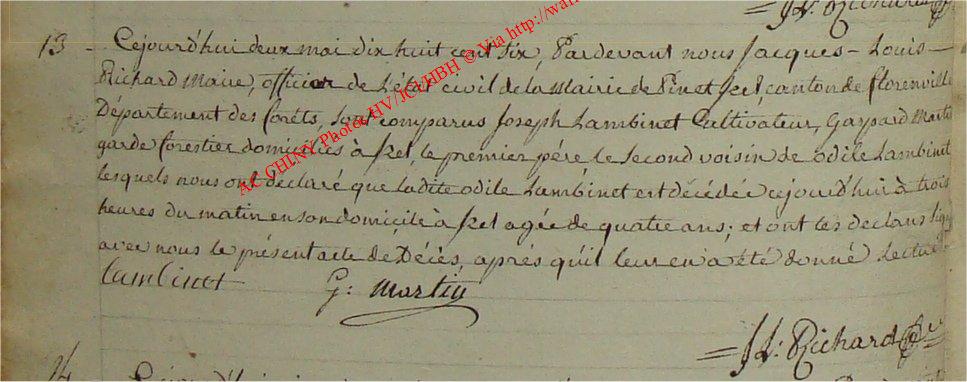 J.L. Richard
13 - Cejourd'hui deux mai dix huit cent six, Pardevant nous Jacques - Louis -
Richard Maire, officier de L'état civil de la Mairie de Pin et Izel, canton de florenville
Département des forêts, sont comparus Joseph Lambinet Cultivateur, Gaspard Martin
garde forestier domiciliés à Izel, le premier père le second voisin de odile Lambinet
lesquels nous ont déclaré que ladite odile Lambinet est décédée cejourd'hui à trois
heures du matin en son domicile à Izel agée de quatre ans; et ont les declarans signé
avec nous le présent acte de Décés, aprés qu'il leur en a été donné Lecture
Lambinet G: Martin
J L: Richard
14
AC CHINY Photos HV/JCvHBH © Via http://wan